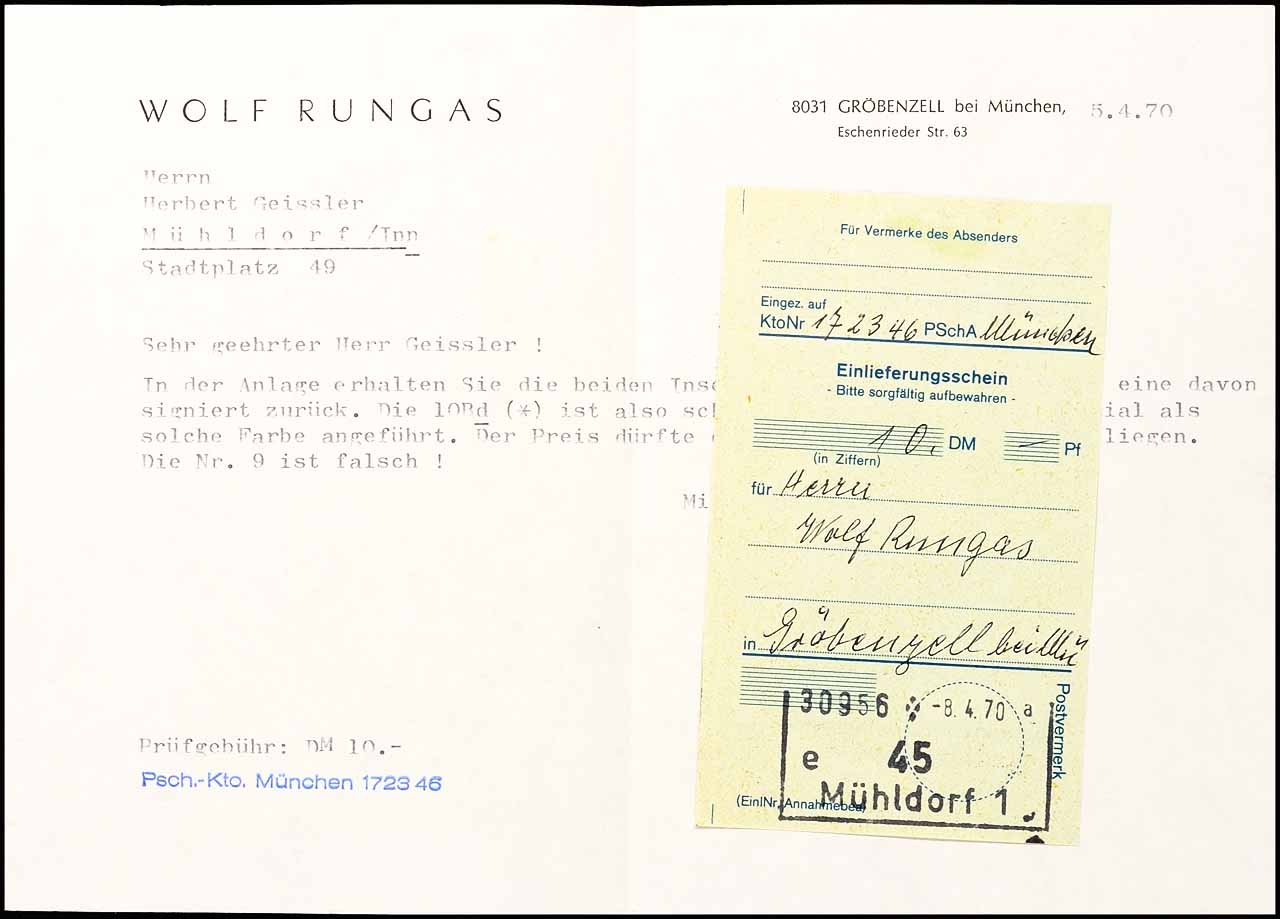 WOLF RUNGAS
8031 GRÖBENZELL bei München, 5.4.70
Eschenrieder Str. 63
Herrn
Herbert Geissler
Mühldorf/Inn
Stadtplatz 49
Sehr geehrter Herr Geissler !
In der Anlage erhalten Sie die beiden eine davon
signiert zurück. Die 10Bd (*) ist also als
solche Farbe angeführt. Der Preis dürfte liegen.
Die Nr. 9 ist falsch !
Mi
Prüfgebühr: DM 10.-
Psch.-Kto. München 1723 46
Für Vermerke des Absenders
Eingez. auf
KtoNr 172346 PSchA München
Einlieferungsschein
- Bitte sorgfältig aufbewahren -
10, DM — Pf
(in Ziffern)
für Herrn
Wolf Rungas
in Gröbenzell bei Mü
Postvermerk
30956 -8.4.70 a
e 45
Mühldorf 1
(EinlNr) Annahmebea